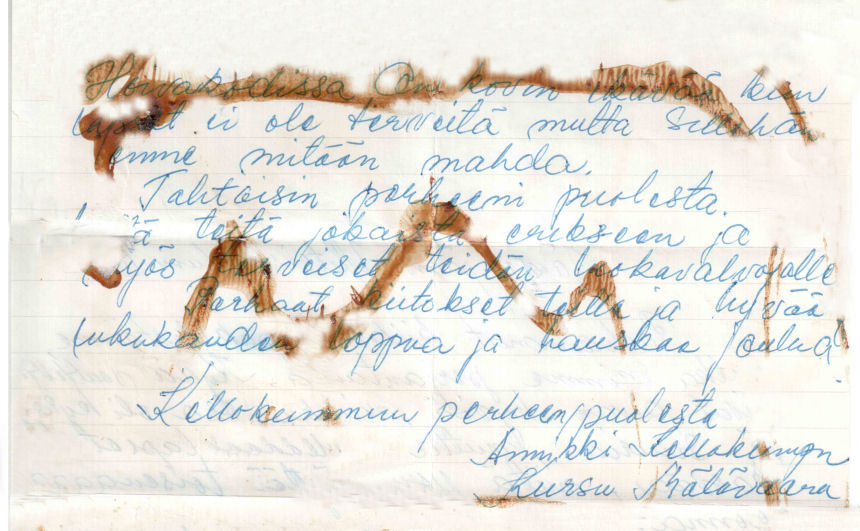 Hoivakodissa On kovin ikävää kun
lapset ei ole terveitä mutta sillehän
emme mitään mahda.
Tahtoisin perheeni puolesta
teitä jokaista erikseen ja
myös terveiset teidän luokavalvojalle
Parhaat kiitokset teille ja hyvää
lukukauden loppua ja hauskaa joulua!
Kellokummun perheen puolesta
Annikki Kellokumpu
Kursu Mätävaara